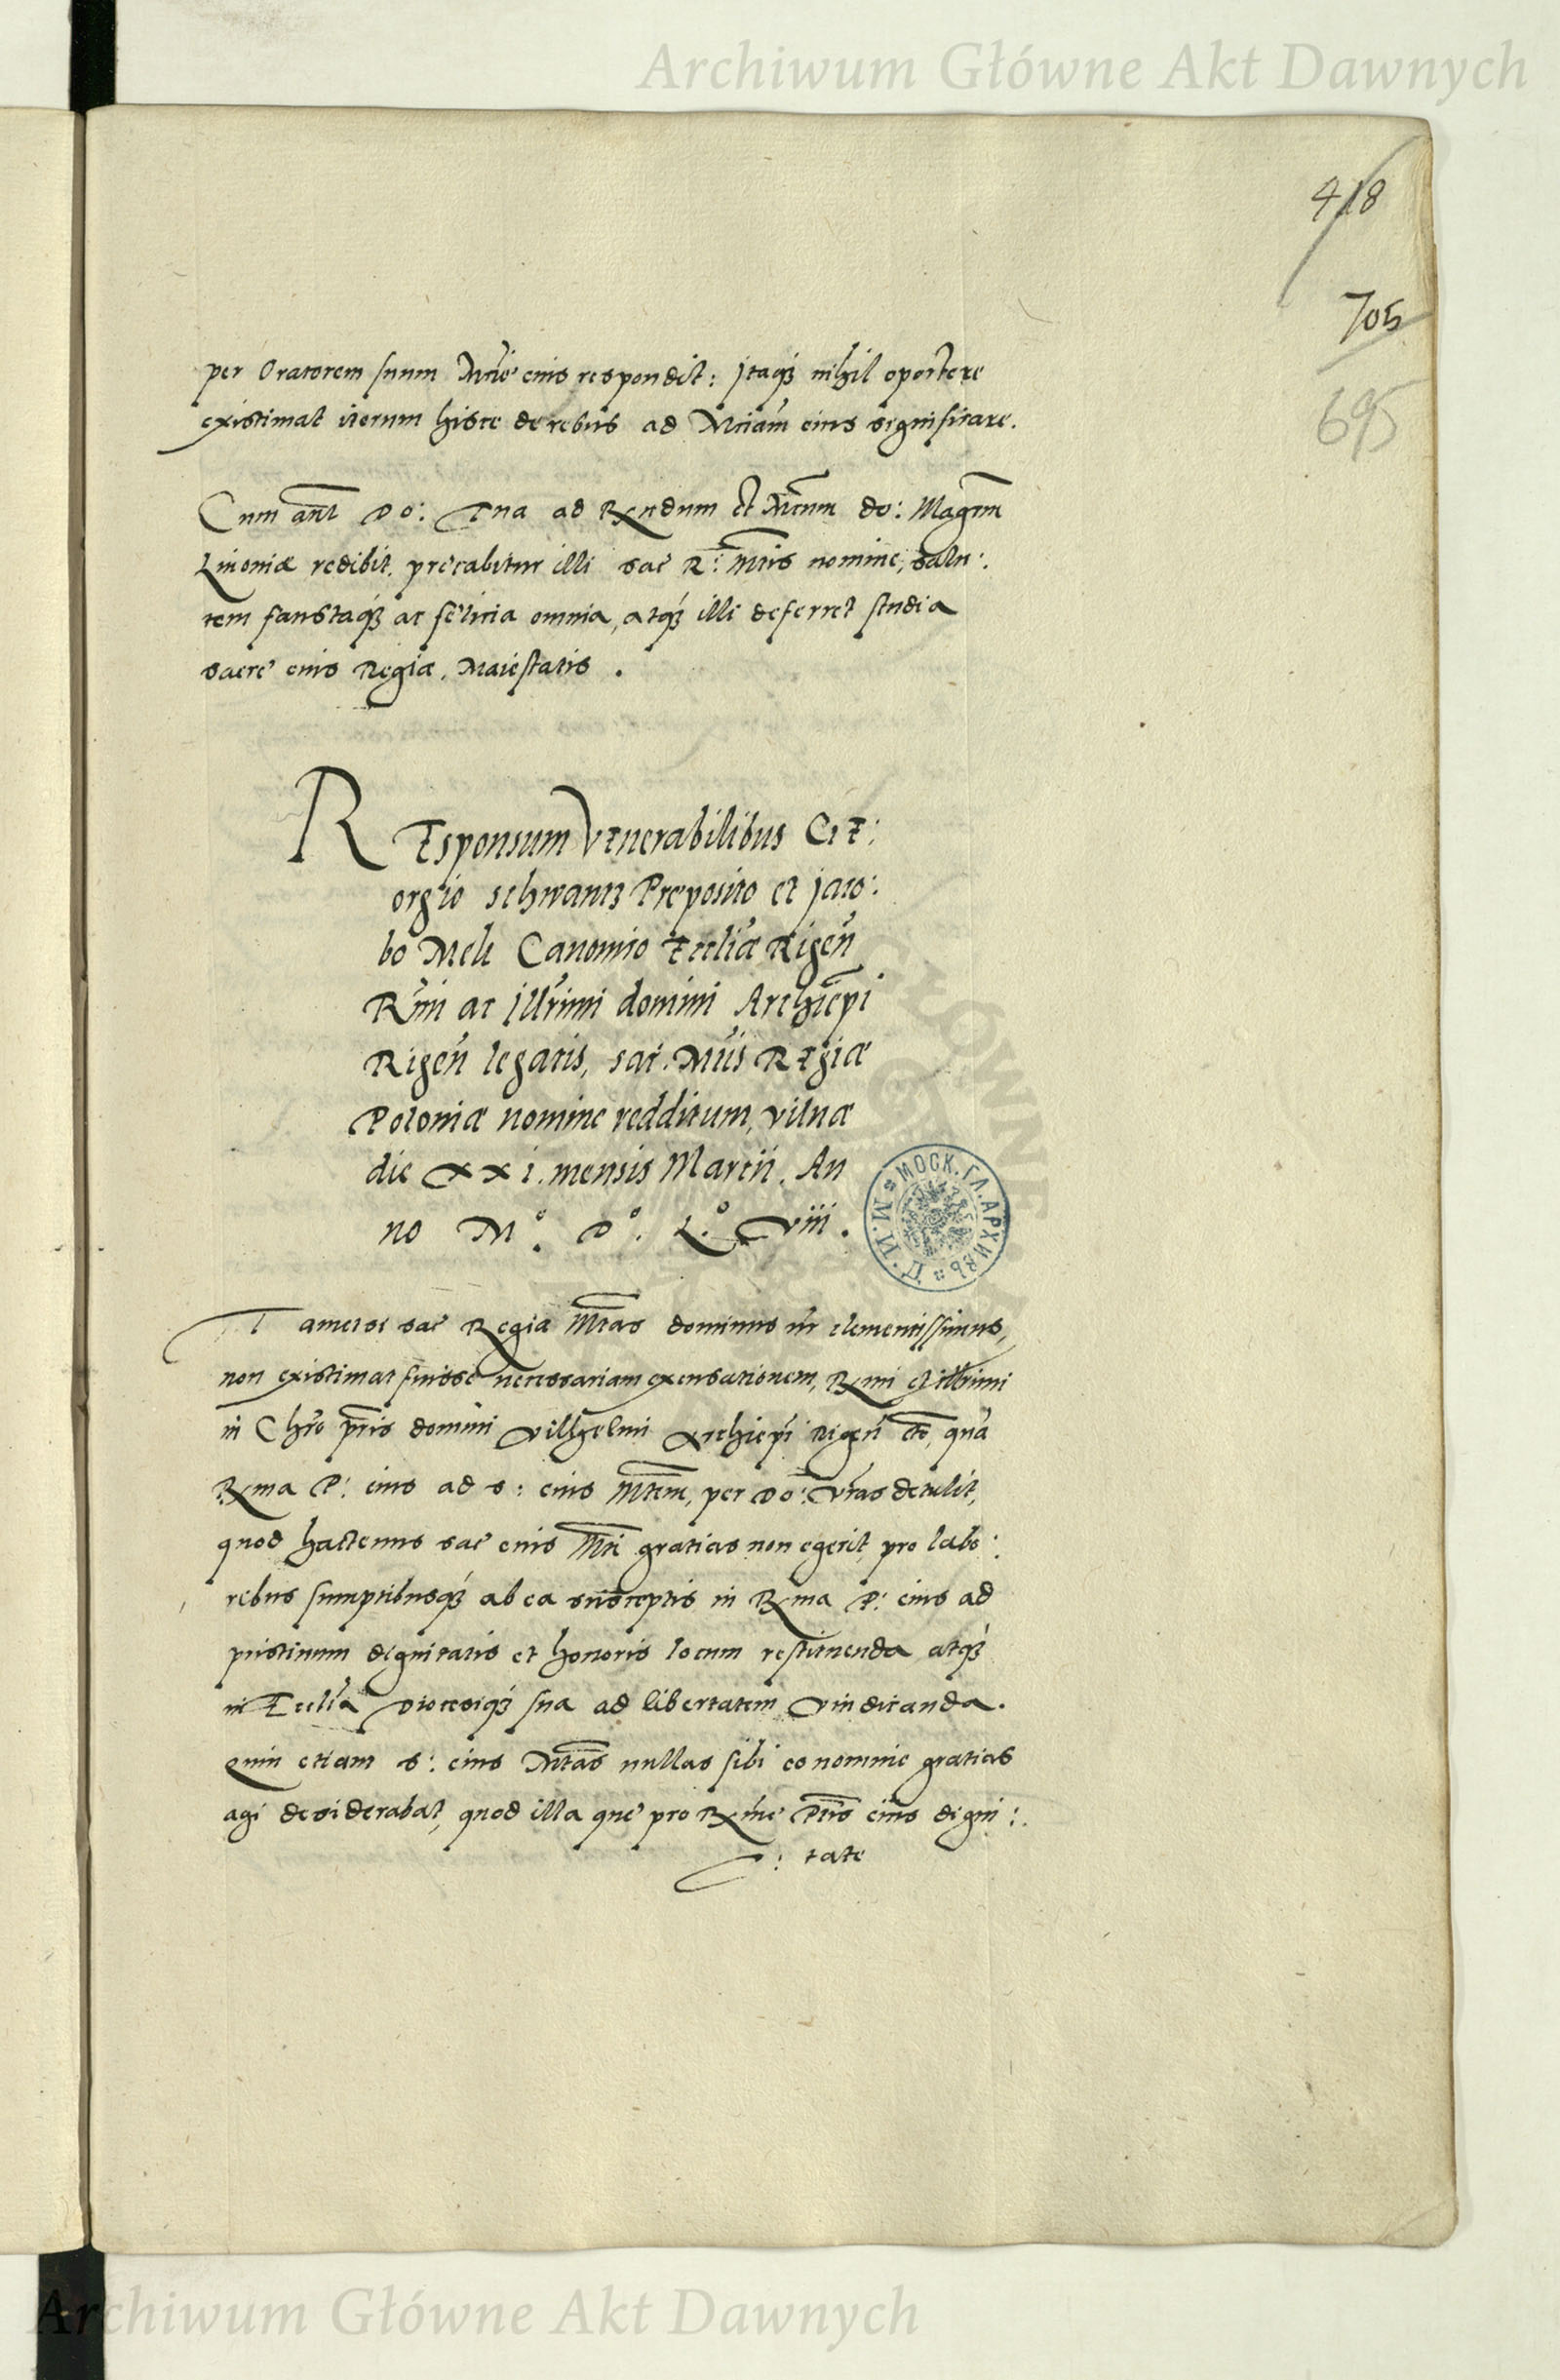 Archiwum Główne Akt Dawnych
418
705
695
per Oratorem suum Mtie eius respondit: Itaqꝫ nihil oportere
existimat iterum hisce de rebus ad Mtiam eius significare.
Cum aut Do: Tua ad Rndum et Mcum do: Magrm
Liuoniæ redibit, precabitur illi sac R: Mtis nomine, salu:
tem faustaqꝫ ac felicia omnia, atqꝫ illi deferret studia
sacre eius Regiæ Maiestatis.
REsponsum Venerabilibus Ge:
orgio schwantz Preposito et Jaco:
bo Meck Canonico Eccliæ Rigen
Rmi ac Illrimi domini Archiepi
Rigen legatis, sac. Mtis Regiæ
Poloniæ nomine redditum, Vilnæ
die xxi. mensis Martii. An
no M.º D.º L.º Viii.
МОСК. ГЛ. АРХИВЪ М. И. Д.
Tametsi sac Regia Mtas dominus nr clementissimus,
non existimat fuisse necessariam excusationem, Rmi et Illrimi
in Chro pris domini Vilhelmi Archiepi Rigen etc, qua
Rma P: eius ad s: eius Mtem, per Do: Vras detulit,
quod hactenus sac eius Mti gratias non egerit, pro labo:
ribus sumptibusqꝫ ab ea susceptis in Rma P: eius ad
pristinum dignitatis et honoris locum restituenda atqꝫ
in Ecclia Diocesiqꝫ sua ad libertatem vindicanda.
Quin etiam s: eius Mtas nullas sibi eo nomine gratias
agi desiderabat, quod illa que pro Rme Ptis eius digni:
tate
Archiwum Główne Akt Dawnych